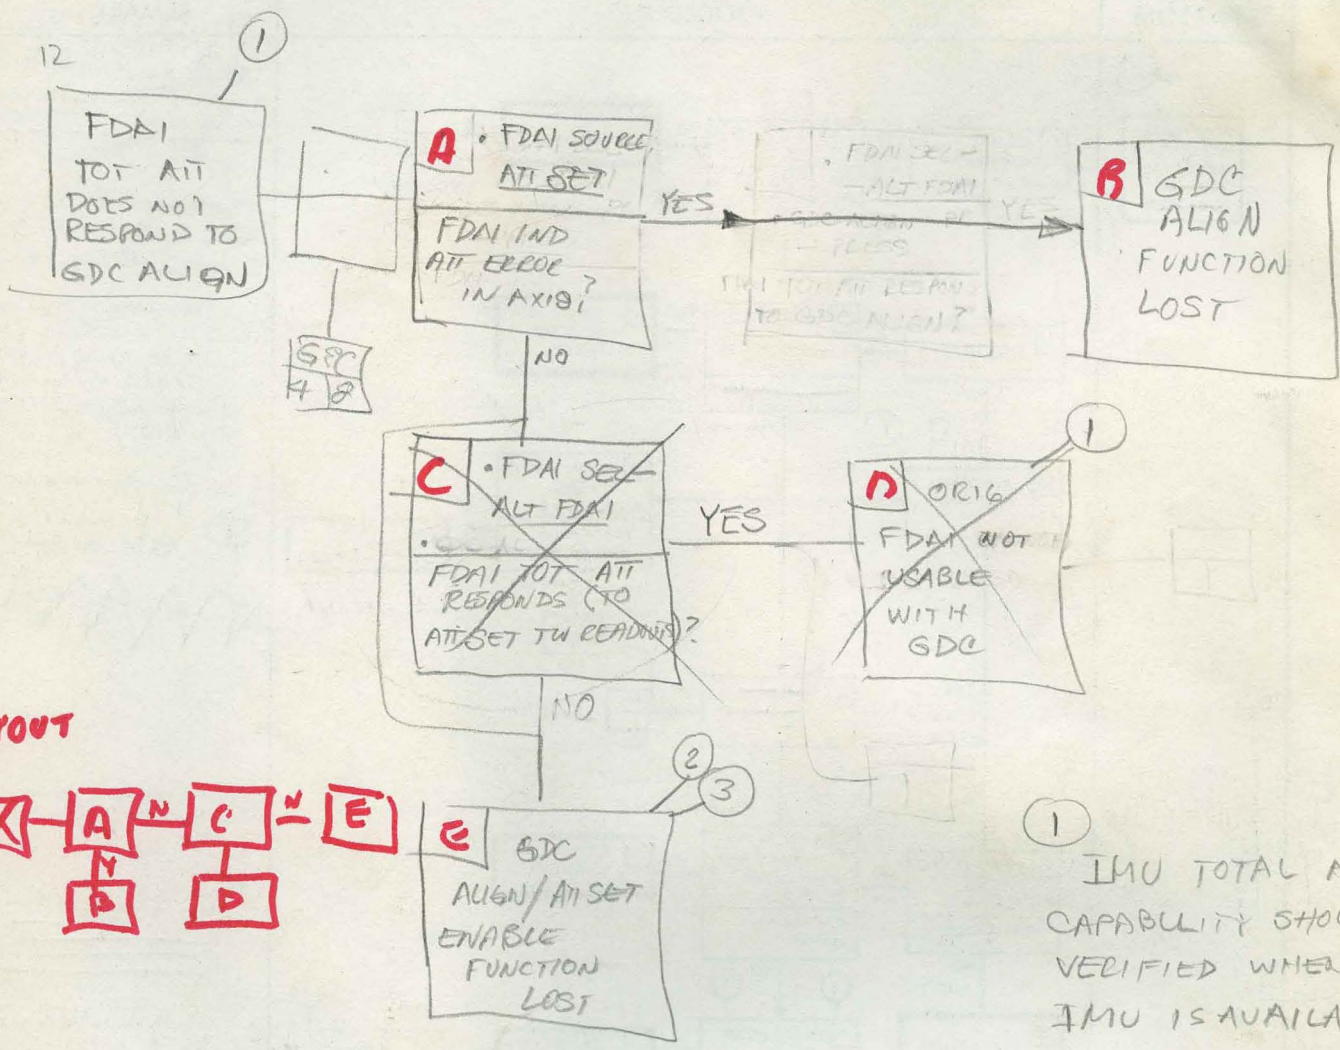 12
1
FDAI
TOT ATT
DOES NOT
RESPOND TO
GDC ALIGN
GDC
4 8
A
• FDAI SOURCE
ATT SET
FDAI IND
ATT ERROR
IN AXIS?
YES
• FDAI SEL -
- ALT FDAI
PRESS
FDAI TOT ATT RESPONDS
TO GDC ALIGN?
YES
B
GDC
ALIGN
FUNCTION
LOST
NO
C
• FDAI SEL -
ALT FDAI
•
FDAI TOT ATT
RESPONDS (TO
ATT SET TW READOUTS)?
YES
1
D
ORIG
FDAI NOT
USABLE
WITH
GDC
1
NO
YOUT
A N C N E
Y
B D
2
3
E
GDC
ALIGN/ATT SET
ENABLE
FUNCTION
LOST
1
IMU TOTAL A
CAPABILITY SHOU
VERIFIED WHEN
IMU IS AVAILA